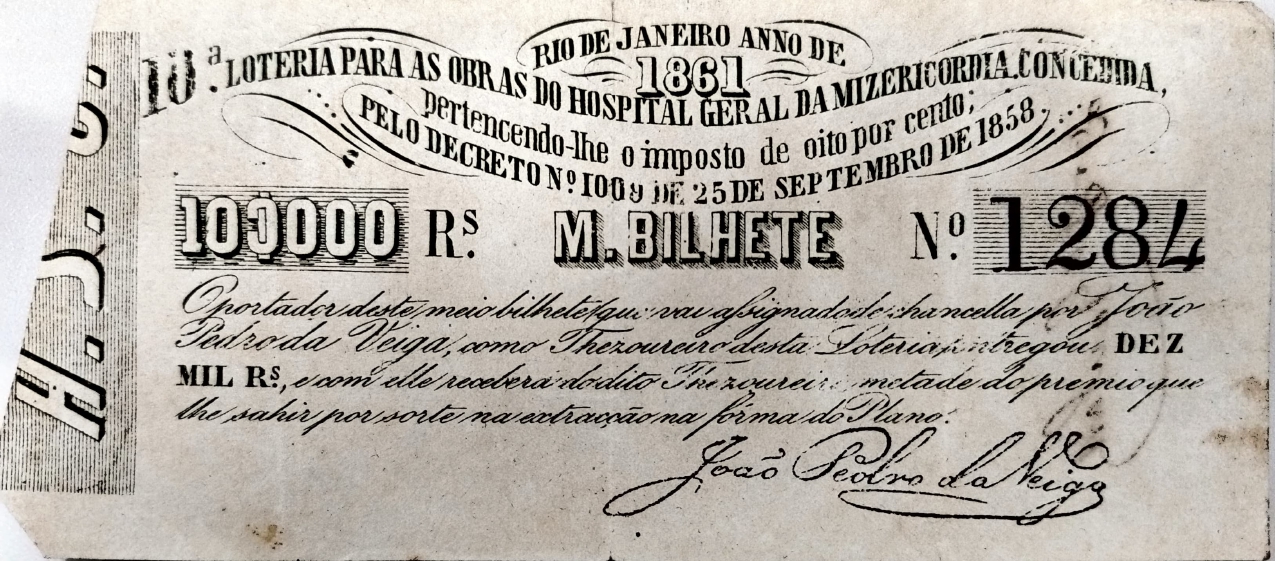 RIO DE JANEIRO ANNO DE
1861
10ª. LOTERIA PARA AS OBRAS DO HOSPITAL GERAL DA MIZERICORDIA, CONCEDIDA,
pertencendo-lhe o imposto de oito por cento;
PELO DECRETO Nº 1009 DE 25 DE SEPTEMBRO DE 1858.
10$000 Rˢ. M. BILHETE Nº 1284
O portador deste meio bilhete que vai assignado de chancella por João
Pedro da Veiga, como Thezoureiro desta Loteria, entregou DEZ
MIL Rˢ, e com elle receberá do dito Thezoureiro metade do premio que
lhe sahir por sorte na extracção na fórma do Plano.
João Pedro da Veiga